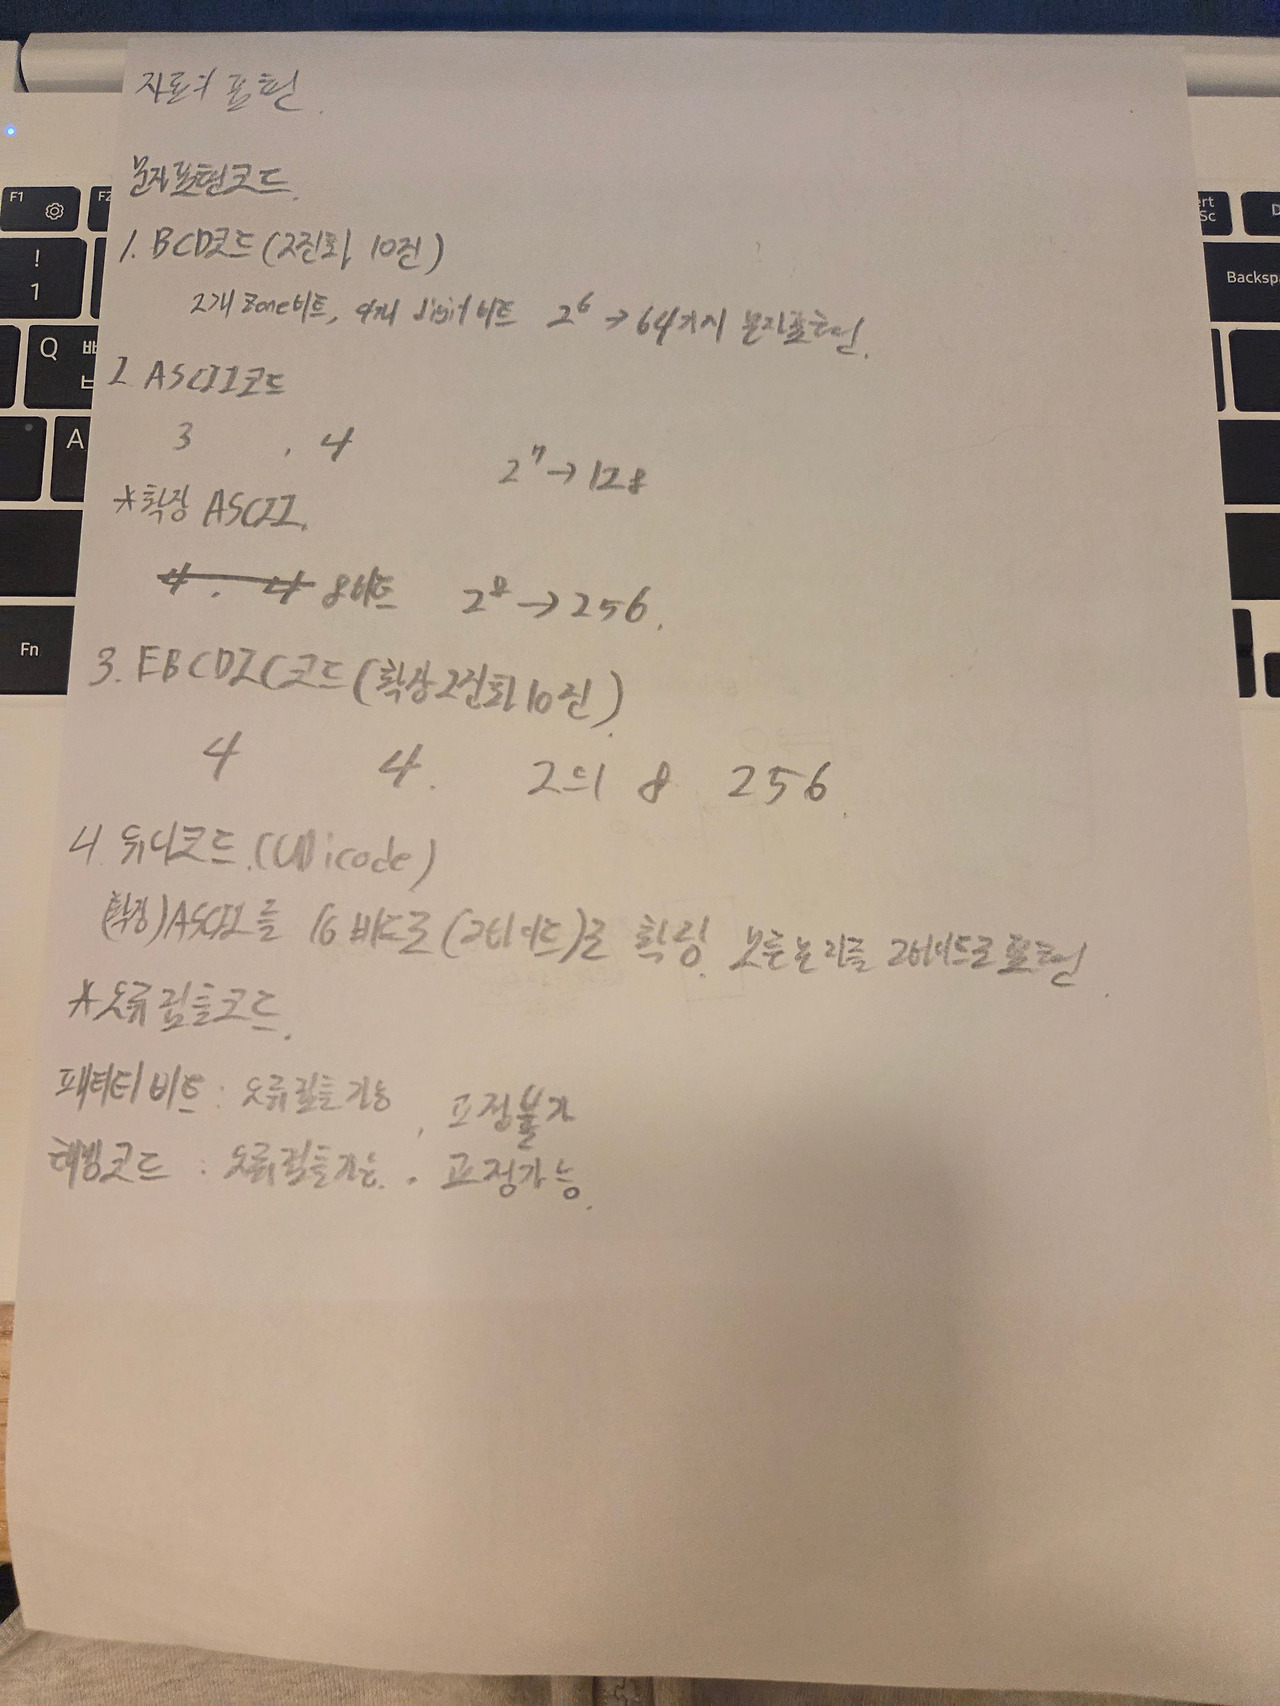 자료의 표현.
문자표현코드.
1. BCD코드 (2진화 10진)
2개 Zone비트, 4개 digit 비트 2⁶ → 64가지 문자표현.
2 ASCII코드
3 , 4 2⁷ → 128
*확장 ASCII.
8비트 2⁸ → 256.
3. EBCDIC코드 (확장2진화10진).
4 4. 2의 8 256.
4. 유니코드.(Unicode)
(확장)ASCII를 16비트로(2바이트)로 확장. 모든 문자를 2바이트로 표현.
*오류검출코드.
패리티 비트 : 오류검출가능, 교정불가
해밍코드 : 오류검출가능. 교정가능.
F1
F2
!
1
Q ㅃ
ㅂ
A
Fn
Sc
Backsp